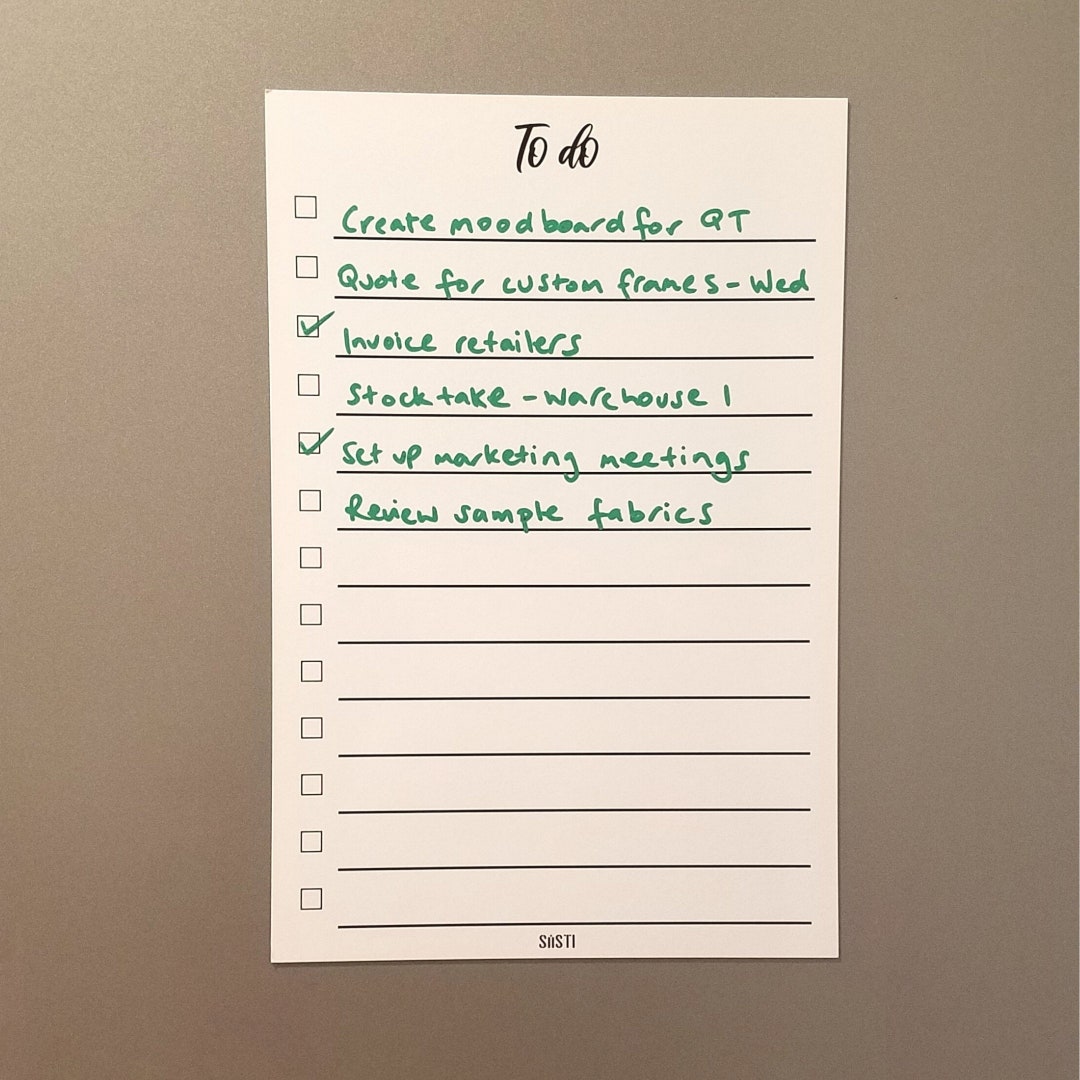 To do
Create moodboard for QT
Quote for custom frames - Wed
Invoice retailers
Stocktake - Warehouse 1
Set up marketing meetings
Review sample fabrics
SÑSTI